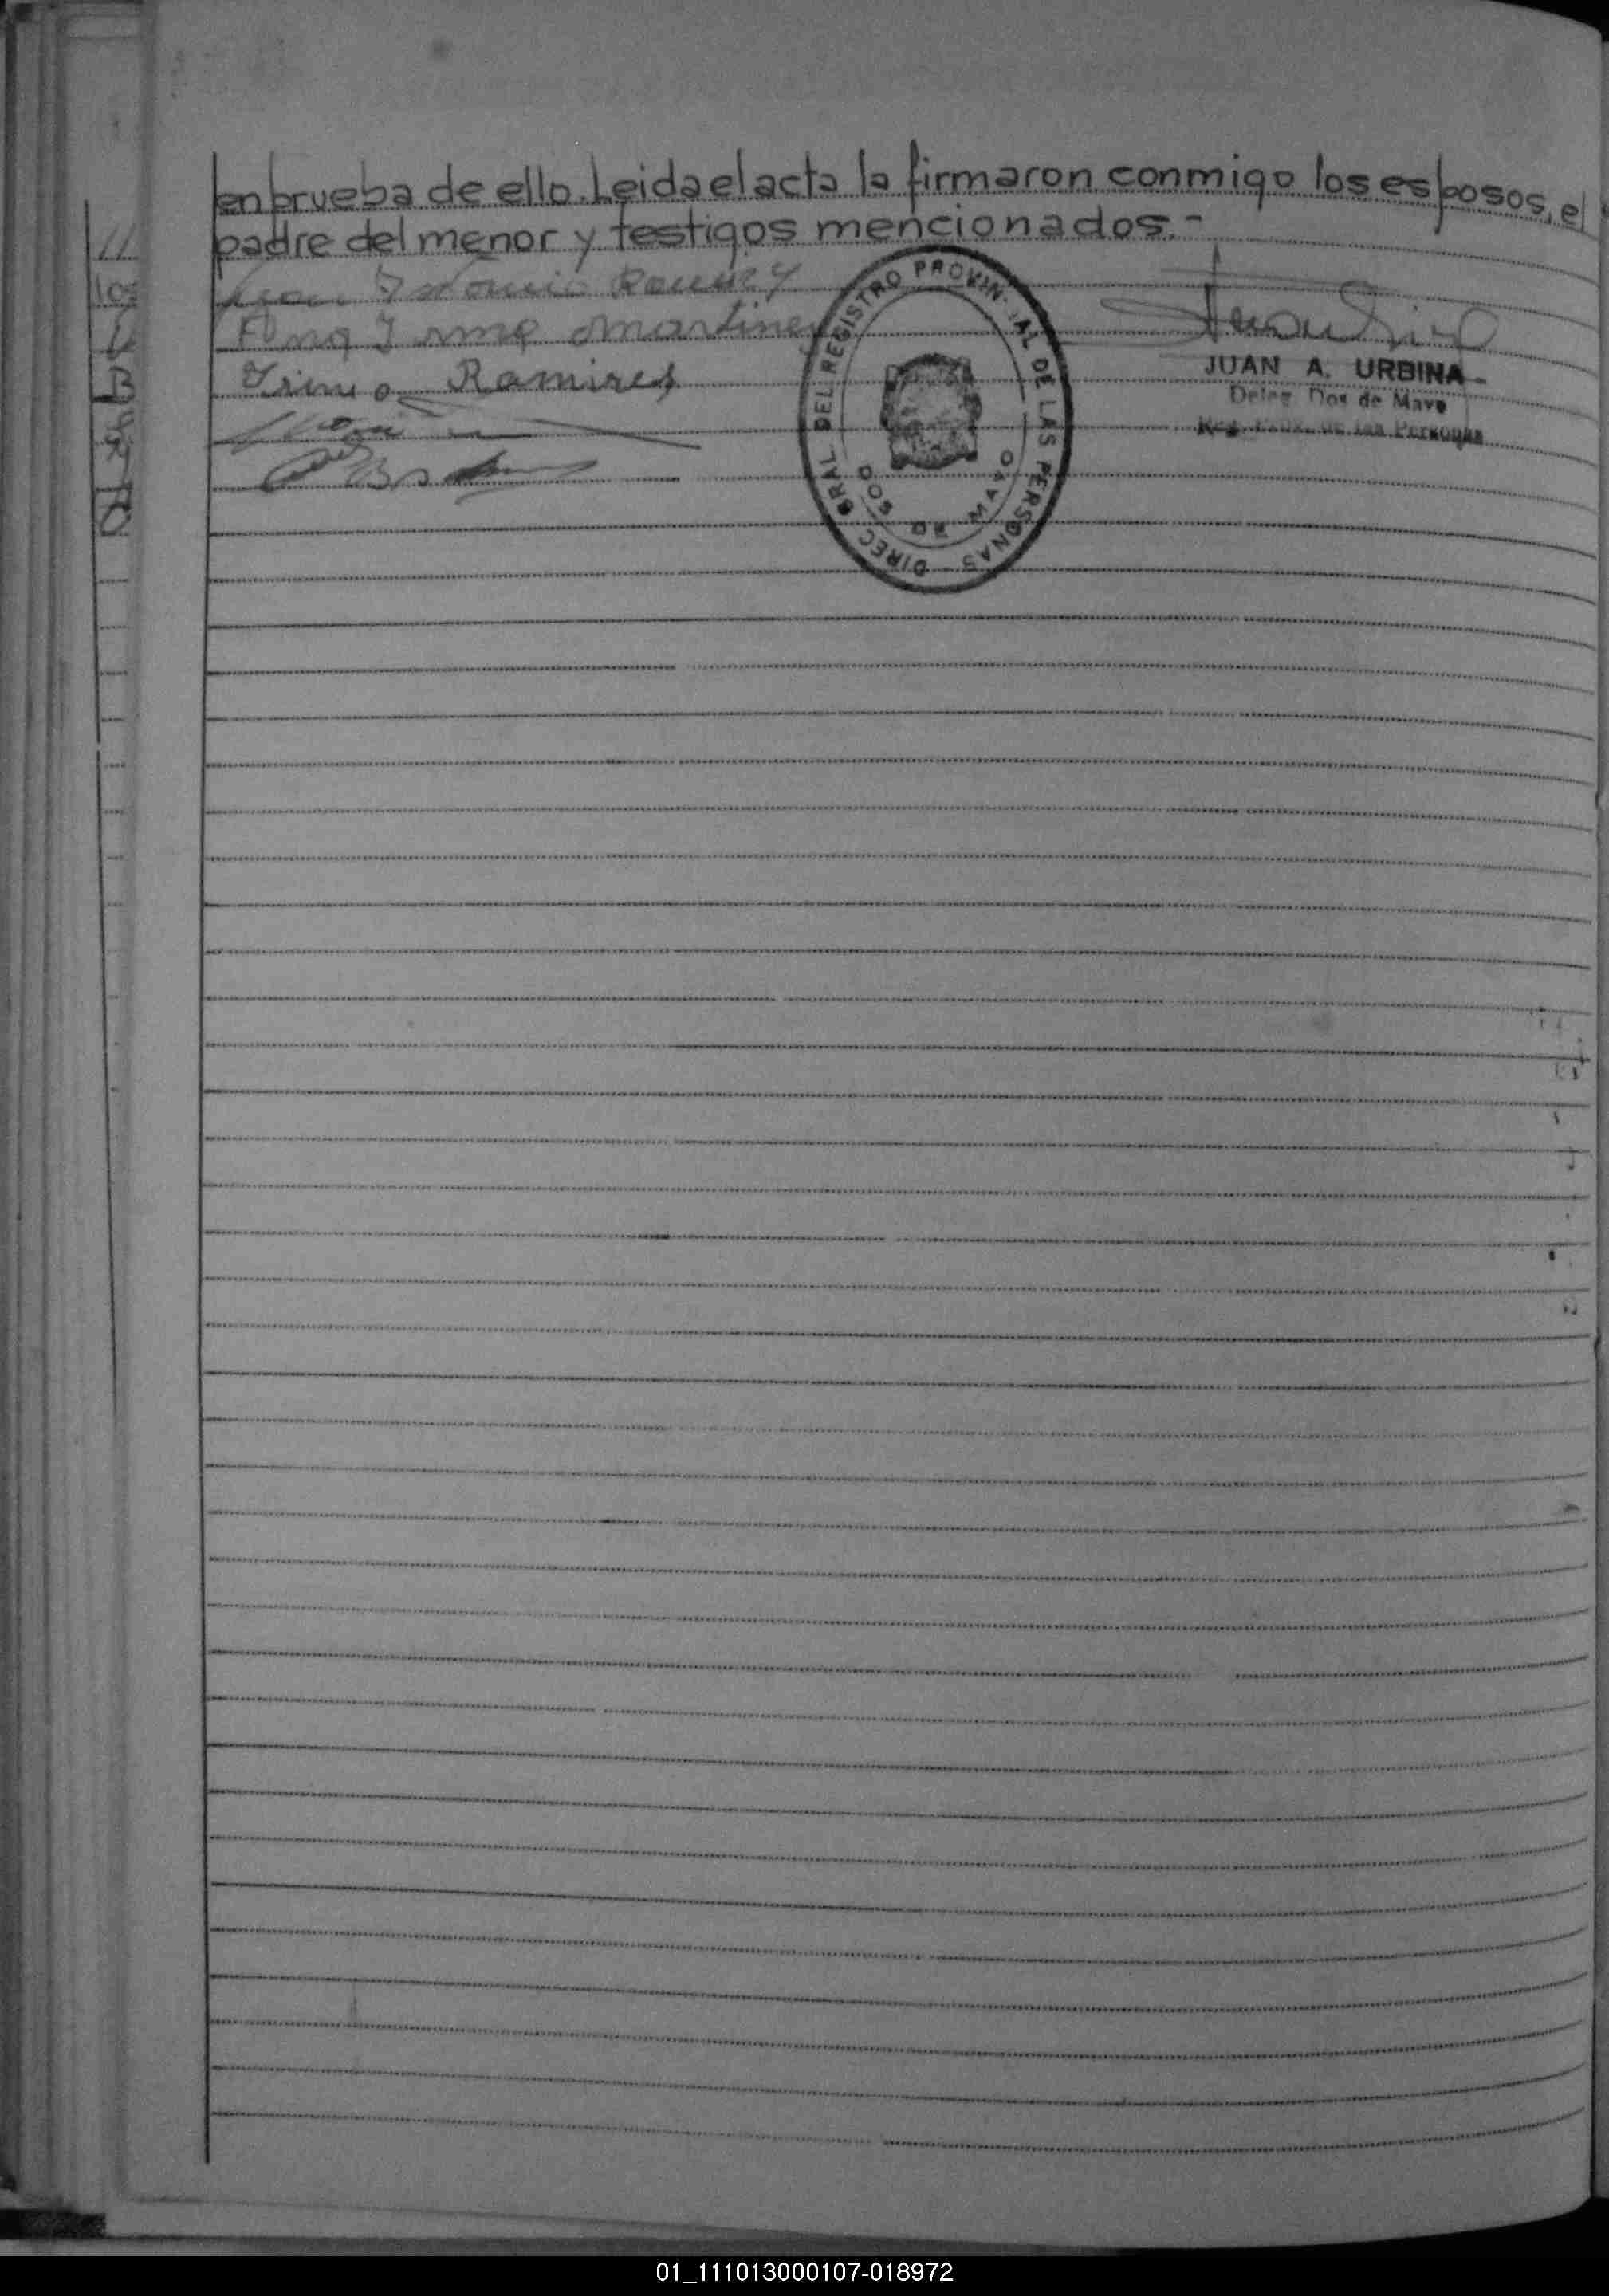 en prueba de ello. Leida el acta la firmaron conmigo los esposos, el
padre del menor y testigos mencionados.-
Ramirez
Ana Irma Martinez
Ramires
DIREC GRAL DEL REGISTRO PROVIN IAL DE LAS PERSONAS
DOS DE MAYO
JUAN A. URBINA
Deleg. Dos de Mayo
Reg. Prov. de las Personas
01_111013000107-018972